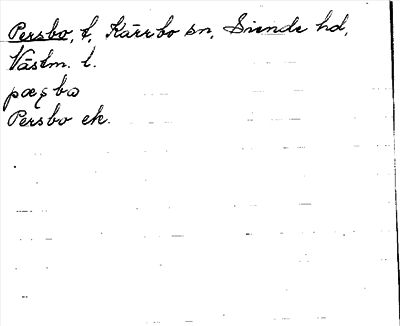 Persbo, t, Kärrbo sn, Siende hd,
Västm. l.
pæʂbω
Persbo ek.